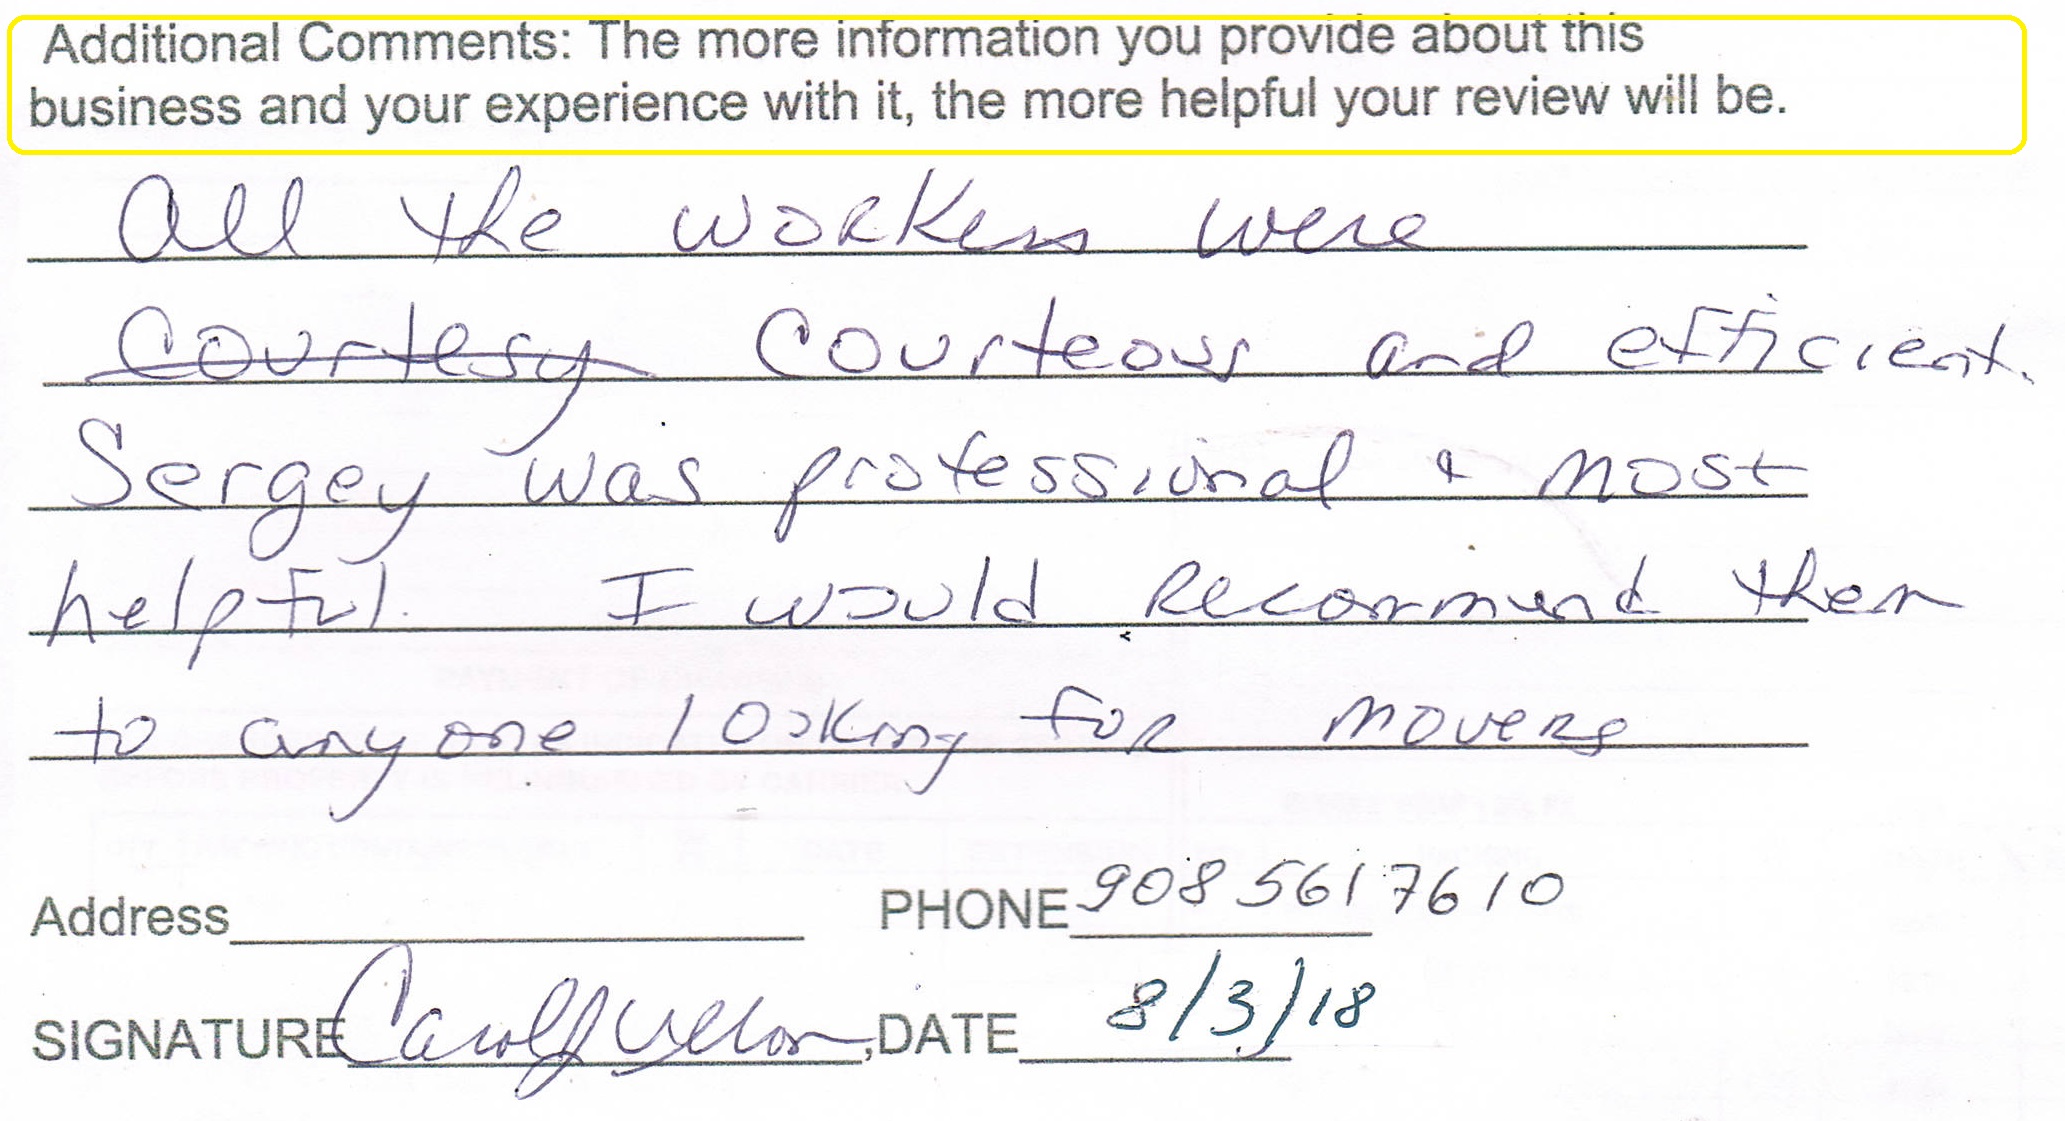 Additional Comments: The more information you provide about this
business and your experience with it, the more helpful your review will be.
All the workers were
Courtesy Courteous and efficient.
Sergey was professional & most
helpful. I would recommend them
to anyone looking for movers
Address PHONE 908 561 7610
SIGNATURE Carol ,DATE 8/3/18